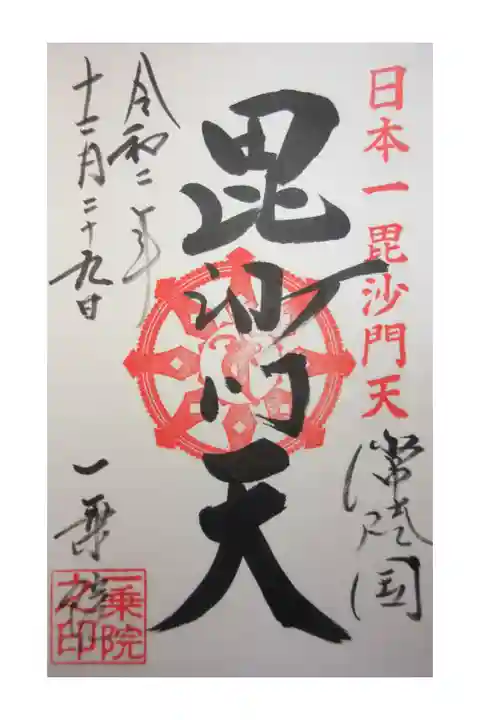 日本一毘沙門天
常陸国
毘沙門天
令和二年
十二月二十九日
一乗院
一乗院
之印